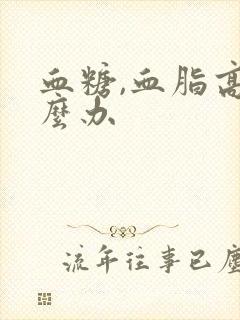 血糖,血脂高
麼办
流年往事已塵